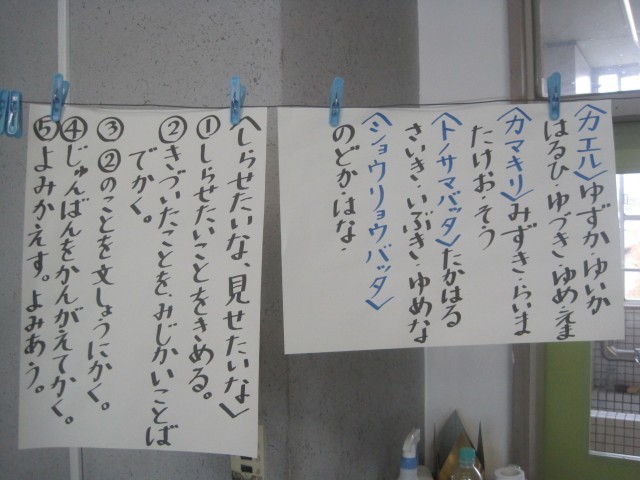 〈カエル〉ゆずか・ゆいか
はるひ・ゆづき・ゆめ・えま
〈カマキリ〉みずき・らいま
たけお・そう
〈トノサマバッタ〉たかはる
さいき・いぶき・ゆめな
〈ショウリョウバッタ〉
のどか・はな・
〈しらせたいな、見せたいな〉
①しらせたいことをきめる。
②きづいたことを、みじかいことば
でかく。
③②のことを文しょうにかく。
④じゅんばんをかんがえてかく。
⑤よみかえす。よみあう。